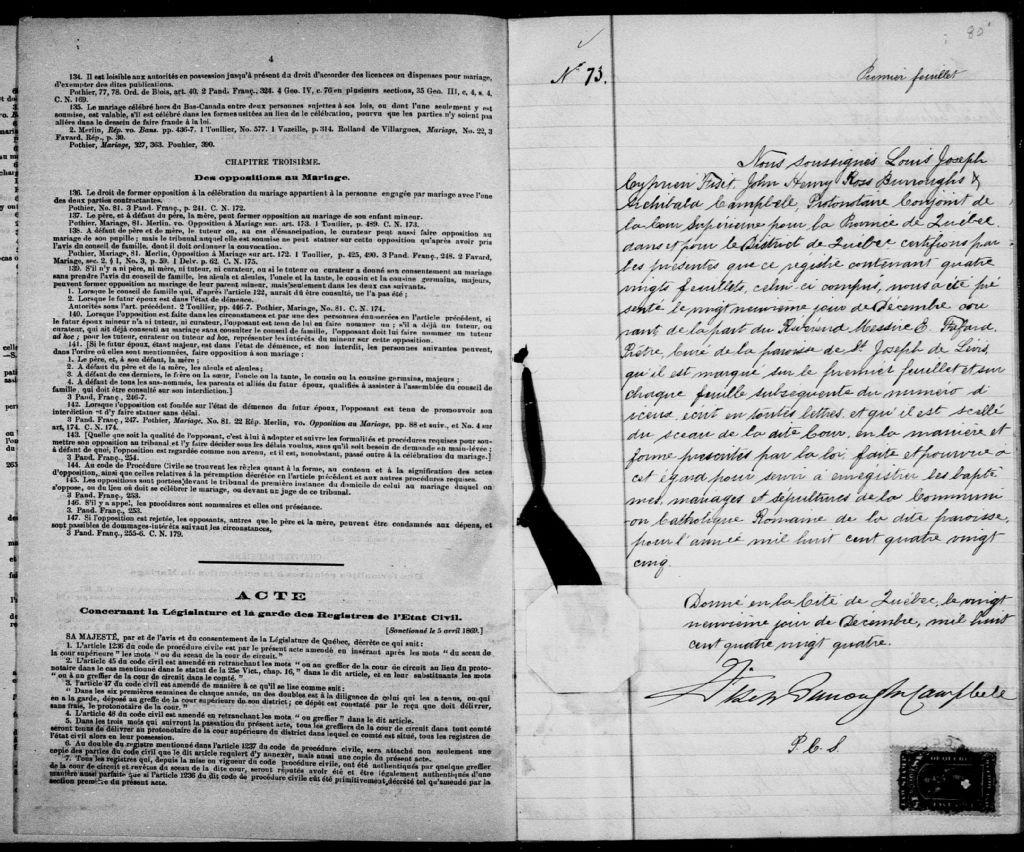 4
134. Il est loisible aux autorités en possession jusqu'à présent du droit d'accorder des licences ou dispenses pour mariage,
d'exempter des dites publications.
Pothier, 77, 78. Ord. de Blois, art. 40, 2 Pand. Franç., 324. 4 Geo. IV, c. 76 en plusieurs sections, 35 Geo. III, c, 4, s. 4.
C. N. 169.
135. Le mariage célébré hors du Bas-Canada entre deux personnes sujettes à ses lois, ou dont l'une seulement y est
soumise, est valable, s'il est célébré dans les formes usitées au lieu de la célébration, pourvu que les parties n'y soient pas
allées dans le dessein de faire fraude à la loi.
2. Merlin, Rép. vo. Bans. pp. 436-7. 1 Toullier, No. 577. 1 Vazeille, p. 314. Rolland de Villargues, Mariage, No. 22, 3
Favard, Rép., p. 30.
Pothier, Mariage, 327, 363. Pouhier, 390.
CHAPITRE TROISIÈME.
Des oppositions au Mariage.
136. Le droit de former opposition à la célébration du mariage appartient à la personne engagée par mariage avec l'one
des deux parties contractantes.
Pothier, No. 81. 3 Pand. Franç., p. 241. C. N. 172.
137. Le père, et à défaut du père, la mère, peut former opposition au mariage de son enfant mineur.
Pothier, Mariage, 81. Merlin. vo. Opposition à Mariage sur. art. 173. 1 Toullier, p. 489. C. N. 173.
138. A défaut de père et de mère, le tuteur ou, au cas d'émancipation, le curateur peut aussi faire opposition au
mariage de son pupille; mais le tribunal auquel elle est soumise ne peut statuer sur cette opposition qu'après avoir pris
l'avis du conseil de famille, dont il doit ordonner la convocation.
Pothier, Mariage, 81. Merlin, Opposition à Mariage, sur art. 172. 1 Toullier, p. 425, 490. 3 Pand. Franç., 248. 2 Favard,
Mariage, sec. 2, § 1, No. 3, p. 59. 1 Delv. p. 62. C. N. 175.
139. S'il n'y a ni père, ni mère, ni tuteur, ni curateur, ou si le tuteur ou curateur a donné son consentement au mariage
sans prendre l'avis du conseil de famille, les aïeuls et aïeules, l'oncle et la tante, le cousin et la cousine germains, majeurs,
peuvent former opposition au mariage de leur parent mineur, mais seulement dans les deux cas suivants.
1. Lorsque le conseil de famille qui, d'après l'article 122, aurait dû être consulté, ne l'a pas été;
2. Lorsque le futur époux est dans l'état de démence.
Autorités sous l'art. précédent. 2 Toullier, pp. 446-7. Pothier, Mariage, No. 81. C. N. 174.
140. Lorsque l'opposition est faite dans les circonstances et par une des personnes énoncées en l'article précédent, si
le futur époux mineur n'a ni tuteur, ni curateur, l'opposant est tenu de lui en faire nommer un; s'il a déjà un tuteur, ou
curateur, qui ait déjà consenti au mariage sans consulter le conseil de famille, l'opposant doit lui faire nommer un tuteur
ad hoc; pour les tuteur, curateur ou tuteur ad hoc, représenter les intérêts du mineur sur cette opposition.
141. [Si le futur époux, étant majeur, est dans l'état de démence, et non interdit, les personnes suivantes peuvent,
dans l'ordre où elles sont mentionnées, faire opposition à son mariage:
1. Le père, et, à son défaut, la mère;
2. A défaut du père et de la mère, les aïeuls et aïeules;
3. A défaut de ces derniers, le frère ou la sœur, l'oncle ou la tante, le cousin ou la cousine germains, majeurs;
4. A défaut de tous les sus-nommés, les parents et alliés du futur époux, qualifiés à assister à l'assemblée du conseil de
famille, qui doit être consulté sur son interdiction.]
3 Pand. Franç., 246-7.
142. Lorsque l'opposition est fondée sur l'état de démence du futur époux, l'opposant est tenu de promouvoir son
interdiction et d'y faire statuer sans délai.
3 Pand. Franç., 247. Pothier, Mariage. No. 81. 22 Rép Merlin, vo. Opposition au Mariage, pp. 88 et suiv., et No. 4 sur
art, 174. C. N. 174.
143. [Quelle que soit la qualité de l'opposant, c'est à lui à adopter et suivre les formalités et procédures requises pour sou-
mettre son opposition au tribunal et l'y faire décider sous les délais voulus, sans qu'il soit besoin de demande en main-levée;
à défaut de quoi, l'opposition est regardée comme non avenue, et il est, nonobstant, passé outre à la célébration du mariage.]
3 Pand. Franç., 254.
144. Au code de Procédure Civile se trouvent les règles quant à la forme, au contenu et à la signification des actes
d'opposition, ainsi que celles relatives à la péremption décrétée en l'article précédent et aux autres procédures requises.
145. Les oppositions sont portées devant le tribunal de première instance du domicile de celui au mariage duquel on
s'oppose, ou du lieu où doit se célébrer le mariage, ou devant un juge de ce tribunal.
3 Pand. Franç., 253.
146. S'il y a appel, les procédures sont sommaires et elles ont préséance.
3. Pand. Franç., 253.
147. Si l'opposition est rejetée, les opposants, autres que le père et la mère, peuvent être condamnés aux dépens, et
sont passibles de dommages-intérêts suivant les circonstances,
3 Pand. Franç., 255-6. C. N. 179.
ACTE
Concernant la Législature et la garde des Registres de l'Etat Civil.
[Sanctionné le 5 avril 1869.]
SA MAJESTÉ, par et de l'avis et du consentement de la Législature de Québec, décrète ce qui suit:
1. L'article 1236 du code de procédure civile est par le présent acte amendé en insérant après les mots "du sceau de
la cour supérieure" les mots "ou au sceau de la cour de circuit."
2. L'article 45 du code civil est amendé en retranchant les mots "ou au greffier de la cour de circuit au lieu du proto-
notaire dans le cas mentionné dans le statut de la 25e Vict., chap. 16," dans dit article, et en leur substituants les mots
"ou à un greffier de la cour de circuit dans le comté."
3. l'article 47 du code civil est amendé de manière à ce qu'il se lise comme suit:
"Dans les six premières semaines de chaque année, un des doubles est à la diligence de celui qui les a tenus, ou qui
en a la garde, déposé au greffe de la cour supérieure de son district; ce dépôt est constaté par le reçu que doit délivrer,
sans frais, le protonotaire de la cour."
4. L'article 48 du code civil est amendé en retranchant les mots "ou greffier" dans le dit article.
5. Dans les trois mois qui suivront la passation du présent acte, tous les greffiers de la cour de circuit dans tout comté
seront tenus de délivrer au protonotaire de la cour supérieure du district dans lequel ce comté est situé, tous les registres de
l'Etat civil alors en leur possession.
6. Au double du registre mentionné dans l'article 1237 du code de procédure civile, sera attaché non seulement une
copie des parties du code civil que le dit article requiert d'y annexer, mais aussi une copie du présent acte.
7. Tous les registres qui, depuis la mise en vigueur du code procédure civile, ont été authentiqués par quelque greffier
de la cour de circuit et revêtus du sceau de la dite cour, seront réputés avoir été et être légalement authentiqués d'une
manière aussi parfaite que si l'article 1236 du dit code de procédure civile eût été primitivement décrété tel qu'amendé par la
section première du présent acte.
80
No 73.
Premier feuillet
Nous soussignés Louis Joseph
Cyprien Fiset, John Henry Ross Burroughs &
Archibald Campbell, Protonotaire Conjoint de
la Cour Supérieure pour la Province de Québec
dans et pour le District de Québec certifions par
les présentes que ce registre contenant quatre
vingts feuillets, celui ci compris, nous a été pré
senté le vingt neuvième jour de Décembre cou
rant de la part du Révérend Messire E. Fafard
Prêtre, Curé de la paroisse de St. Joseph de Lévis,
qu'il est marqué sur le premier feuillet et sur
chaque feuille subséquente du numéro d
iceux, écrit en toutes lettres, et qu'il est scellé
du sceau de la dite Cour, en la manière et
forme prescrites par la loi faite et pourvue à
cet égard pour servir à enregistrer les baptê
mes, mariages et sépultures de la Communi
on Catholique Romaine de la dite paroisse,
pour l'année mil huit cent quatre vingt
cinq.
Donné en la Cité de Québec, le vingt
neuvième jour de Décembre, mil huit
cent quatre vingt quatre.
Fiset Burroughs Campbell
P. C. S.